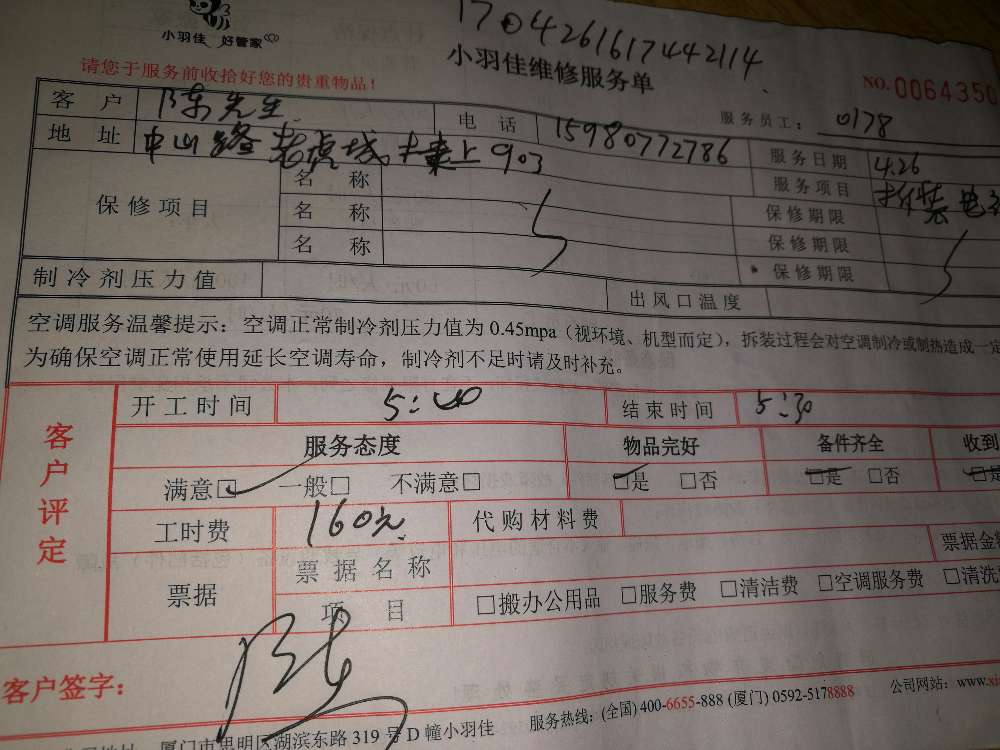 1704261617442114
小羽佳 好管家
小羽佳维修服务单
请您于服务前收拾好您的贵重物品！
NO.0064350
服务员工：0178
客户 陈先生 电话 15980772786 服务日期 4.26
地址 中山路老虎城 903 服务项目 拆装电
保修项目 名称 保修期限
名称 保修期限
名称 保修期限
制冷剂压力值 出风口温度
空调服务温馨提示：空调正常制冷剂压力值为0.45mpa（视环境、机型而定），拆装过程会对空调制冷或制热造成一定
为确保空调正常使用延长空调寿命，制冷剂不足时请及时补充。
客户评定
开工时间 5:40 结束时间 5:30
服务态度 物品完好 备件齐全 收到
满意□ 一般□ 不满意□ □是 □否 □是 □否 □是
工时费 160元 代购材料费
票据 票据名称 票据金
项目 □搬办公用品 □服务费 □清洁费 □空调服务费 □清洗
客户签字：陈
厦门市思明区湖滨东路319号D幢小羽佳 服务热线：(全国)400-6655-888 (厦门)0592-5178888 公司网站：www.xi